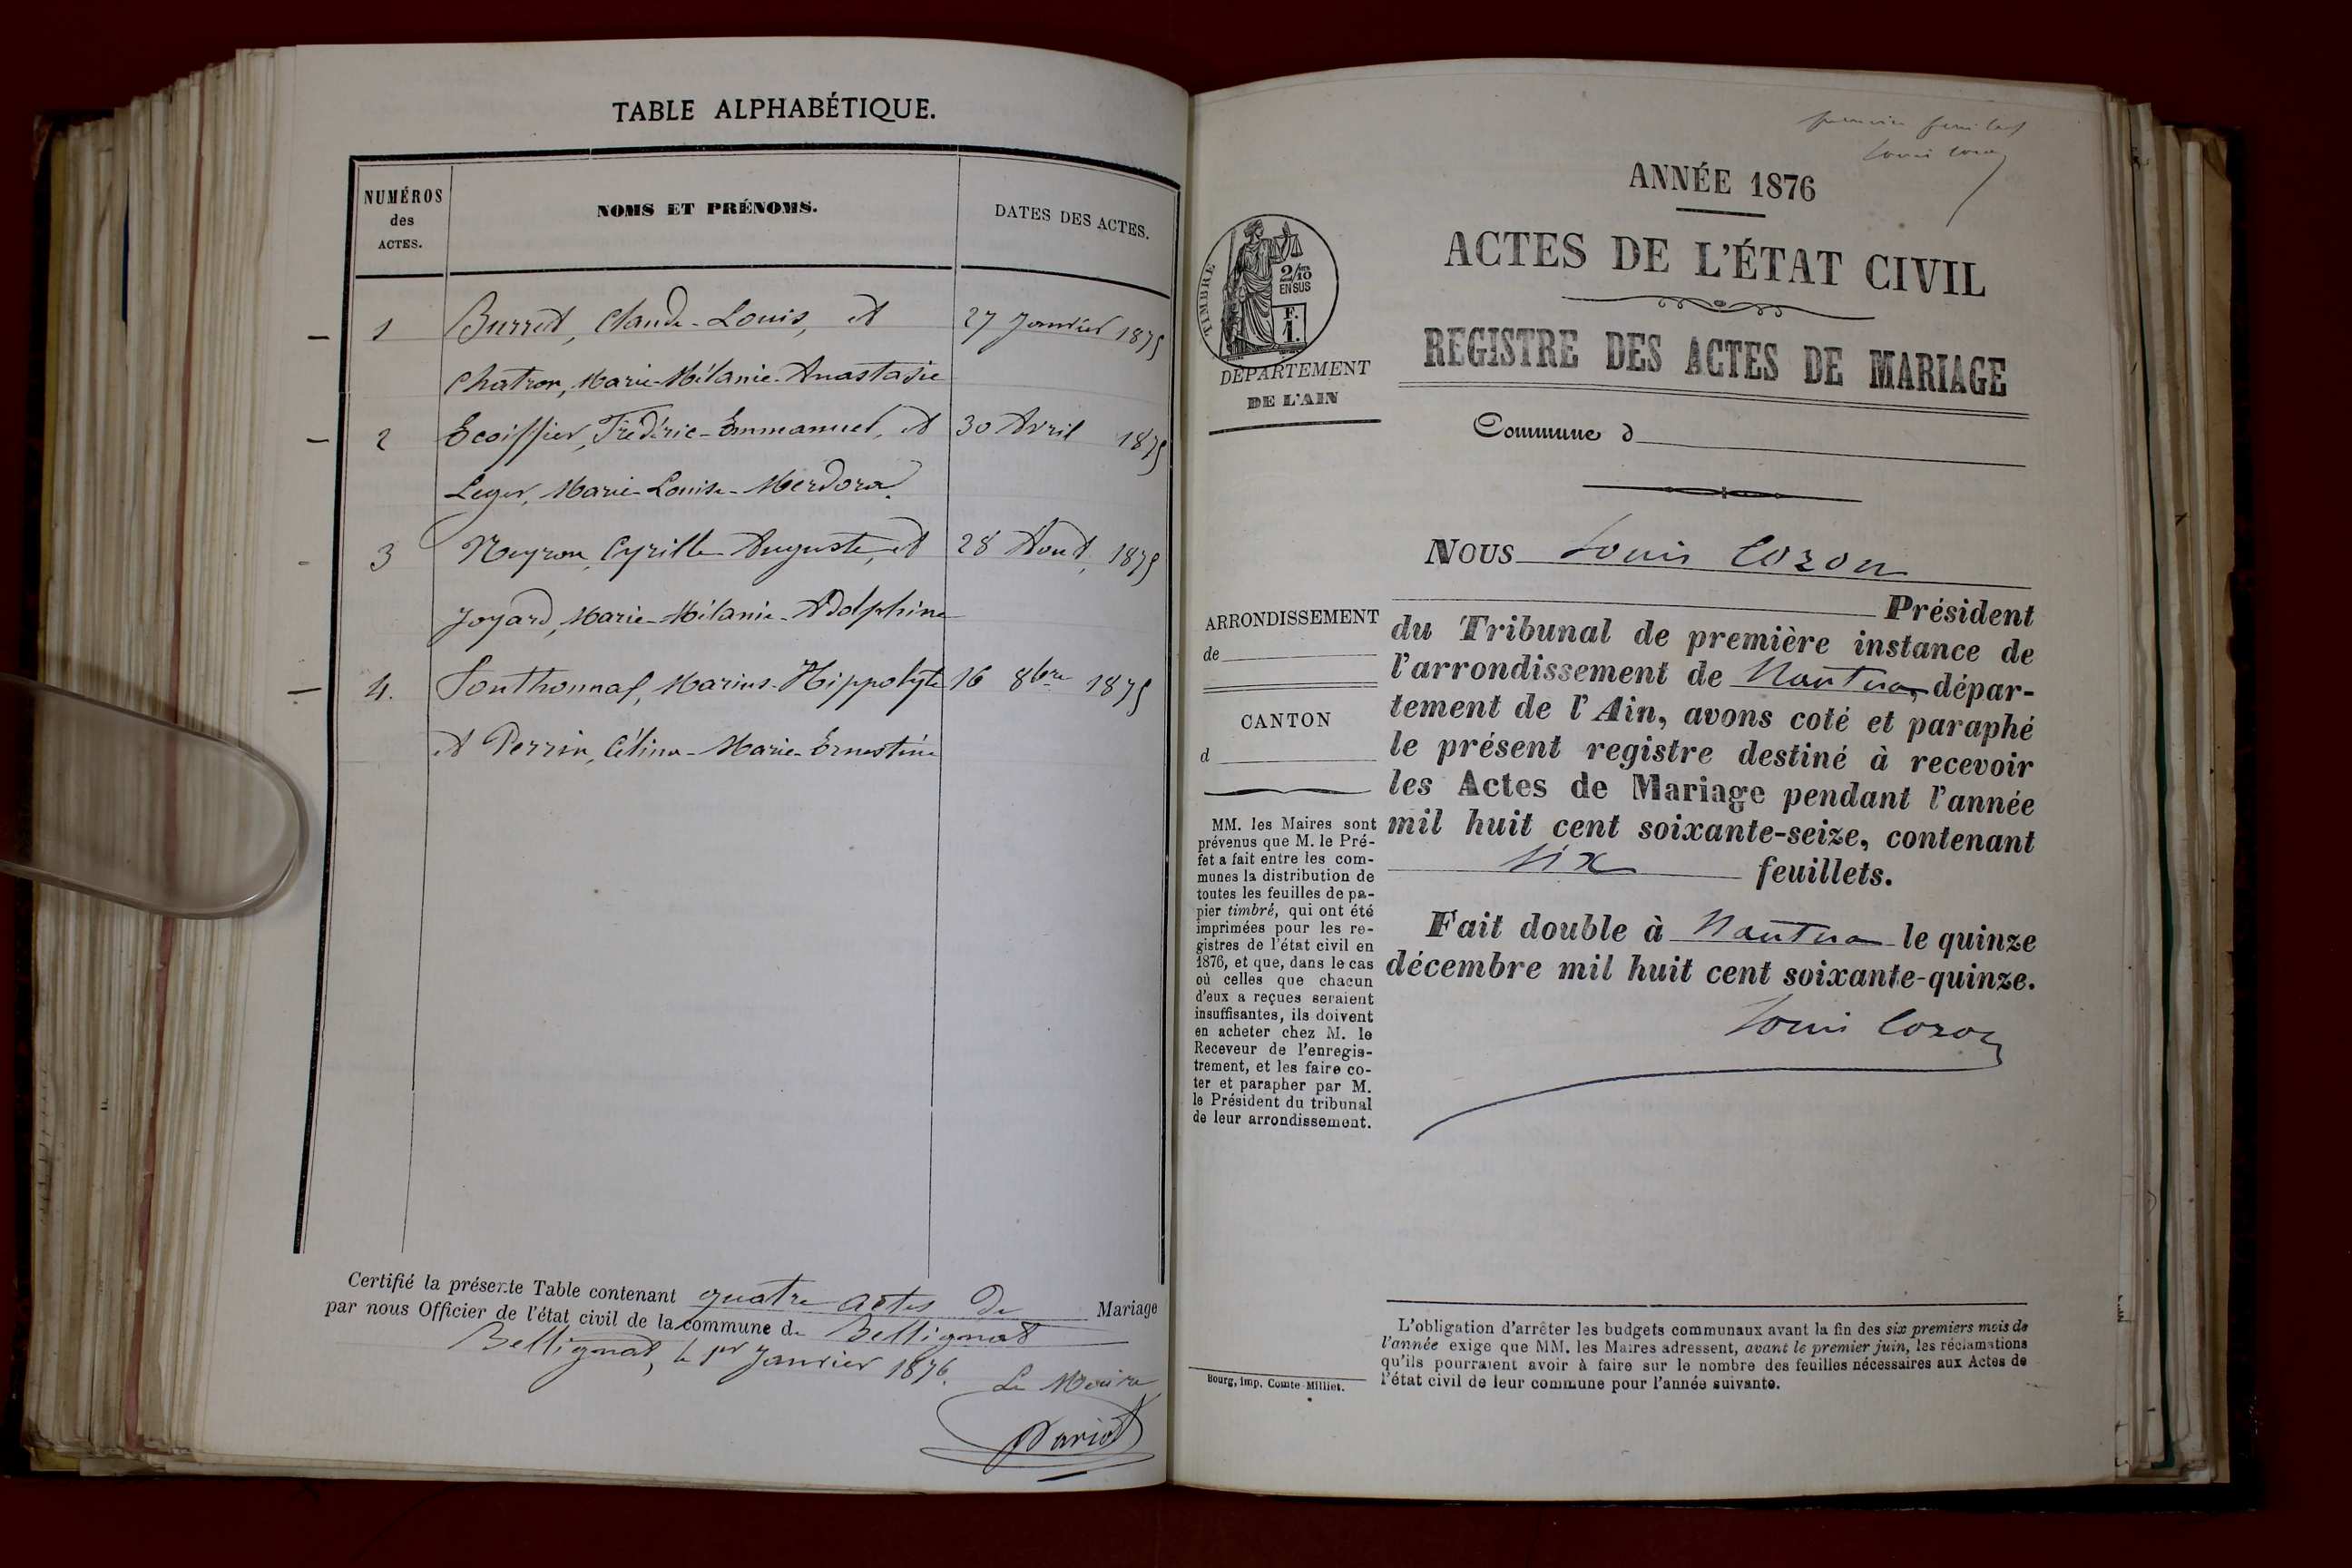 TABLE ALPHABÉTIQUE.
NUMÉROS
des
ACTES.
NOMS ET PRÉNOMS.
DATES DES ACTES.
1 Burret, Claude-Louis, et 27 Janvier 1875
Chatron, Marie-Mélanie-Anastasie
2 Ecoiffier, Frédéric-Emmanuel, et 30 Avril 1875
Leger, Marie-Louise-Merdora.
3 Neyron, Cyrille-Auguste, et 28 Aout, 1875
Joyard, Marie-Mélanie-Adolphine
4. Sonthonnaf, Marius-Hippolyte 16 8bre 1875
et Perrin, Célina-Marie-Ernestine
Certifié la présente Table contenant quatre actes de Mariage
par nous Officier de l'état civil de la commune de Bellignat
Bellignat, le 1er Janvier 1876.
Le Maire
Dariod
premier feuillet
Louis Cozon
ANNÉE 1876
ACTES DE L'ÉTAT CIVIL
REGISTRE DES ACTES DE MARIAGE
TIMBRE
2/10
EN SUS
F.
1.
DÉPARTEMENT
DE L'AIN
Commune d
NOUS Louis Cozon
Président
du Tribunal de première instance de
l'arrondissement de Nantua, dépar-
tement de l'Ain, avons coté et paraphé
le présent registre destiné à recevoir
les Actes de Mariage pendant l'année
mil huit cent soixante-seize, contenant
six feuillets.
Fait double à Nantua le quinze
décembre mil huit cent soixante-quinze.
Louis Cozon
ARRONDISSEMENT
de
CANTON
d
MM. les Maires sont
prévenus que M. le Pré-
fet a fait entre les com-
munes la distribution de
toutes les feuilles de pa-
pier timbré, qui ont été
imprimées pour les re-
gistres de l'état civil en
1876, et que, dans le cas
où celles que chacun
d'eux a reçues seraient
insuffisantes, ils doivent
en acheter chez M. le
Receveur de l'enregis-
trement, et les faire co-
ter et parapher par M.
le Président du tribunal
de leur arrondissement.
Bourg, imp. Comte-Milliet.
L'obligation d'arrêter les budgets communaux avant la fin des six premiers mois de
l'année exige que MM. les Maires adressent, avant le premier juin, les réclamations
qu'ils pourraient avoir à faire sur le nombre des feuilles nécessaires aux Actes de
l'état civil de leur commune pour l'année suivante.